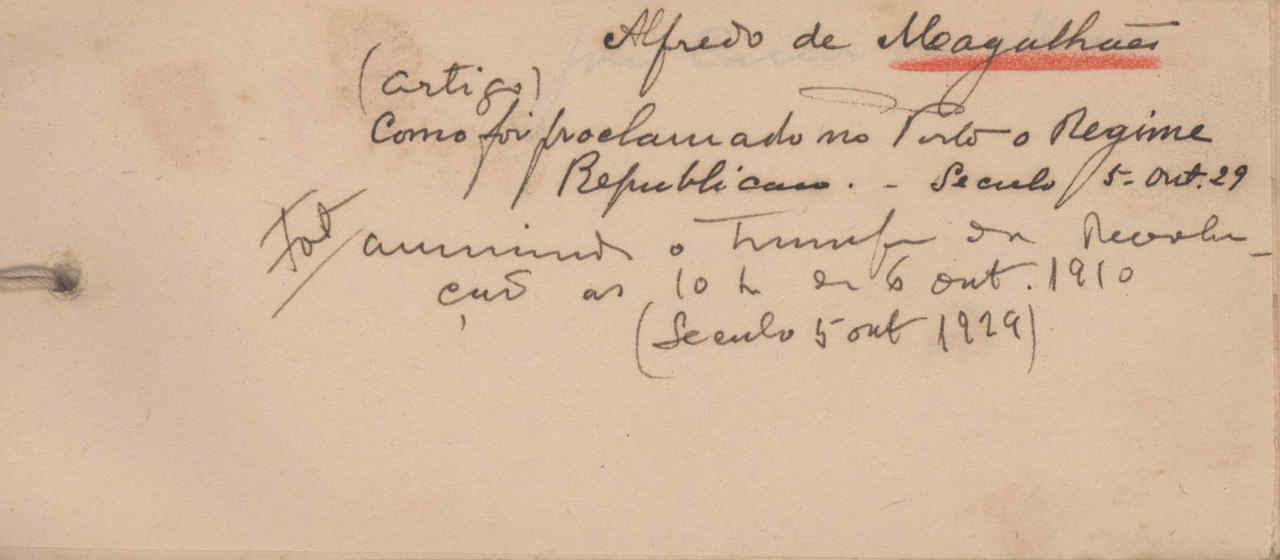 Alfredo de Magalhães
(artigo)
Como foi proclamado no Porto o Regime
Republicano. - Seculo 5-out. 29
Fot anunciando o Triunfo da Revolu-
ção as 10 h de 6 out. 1910
(Seculo 5 out 1929)